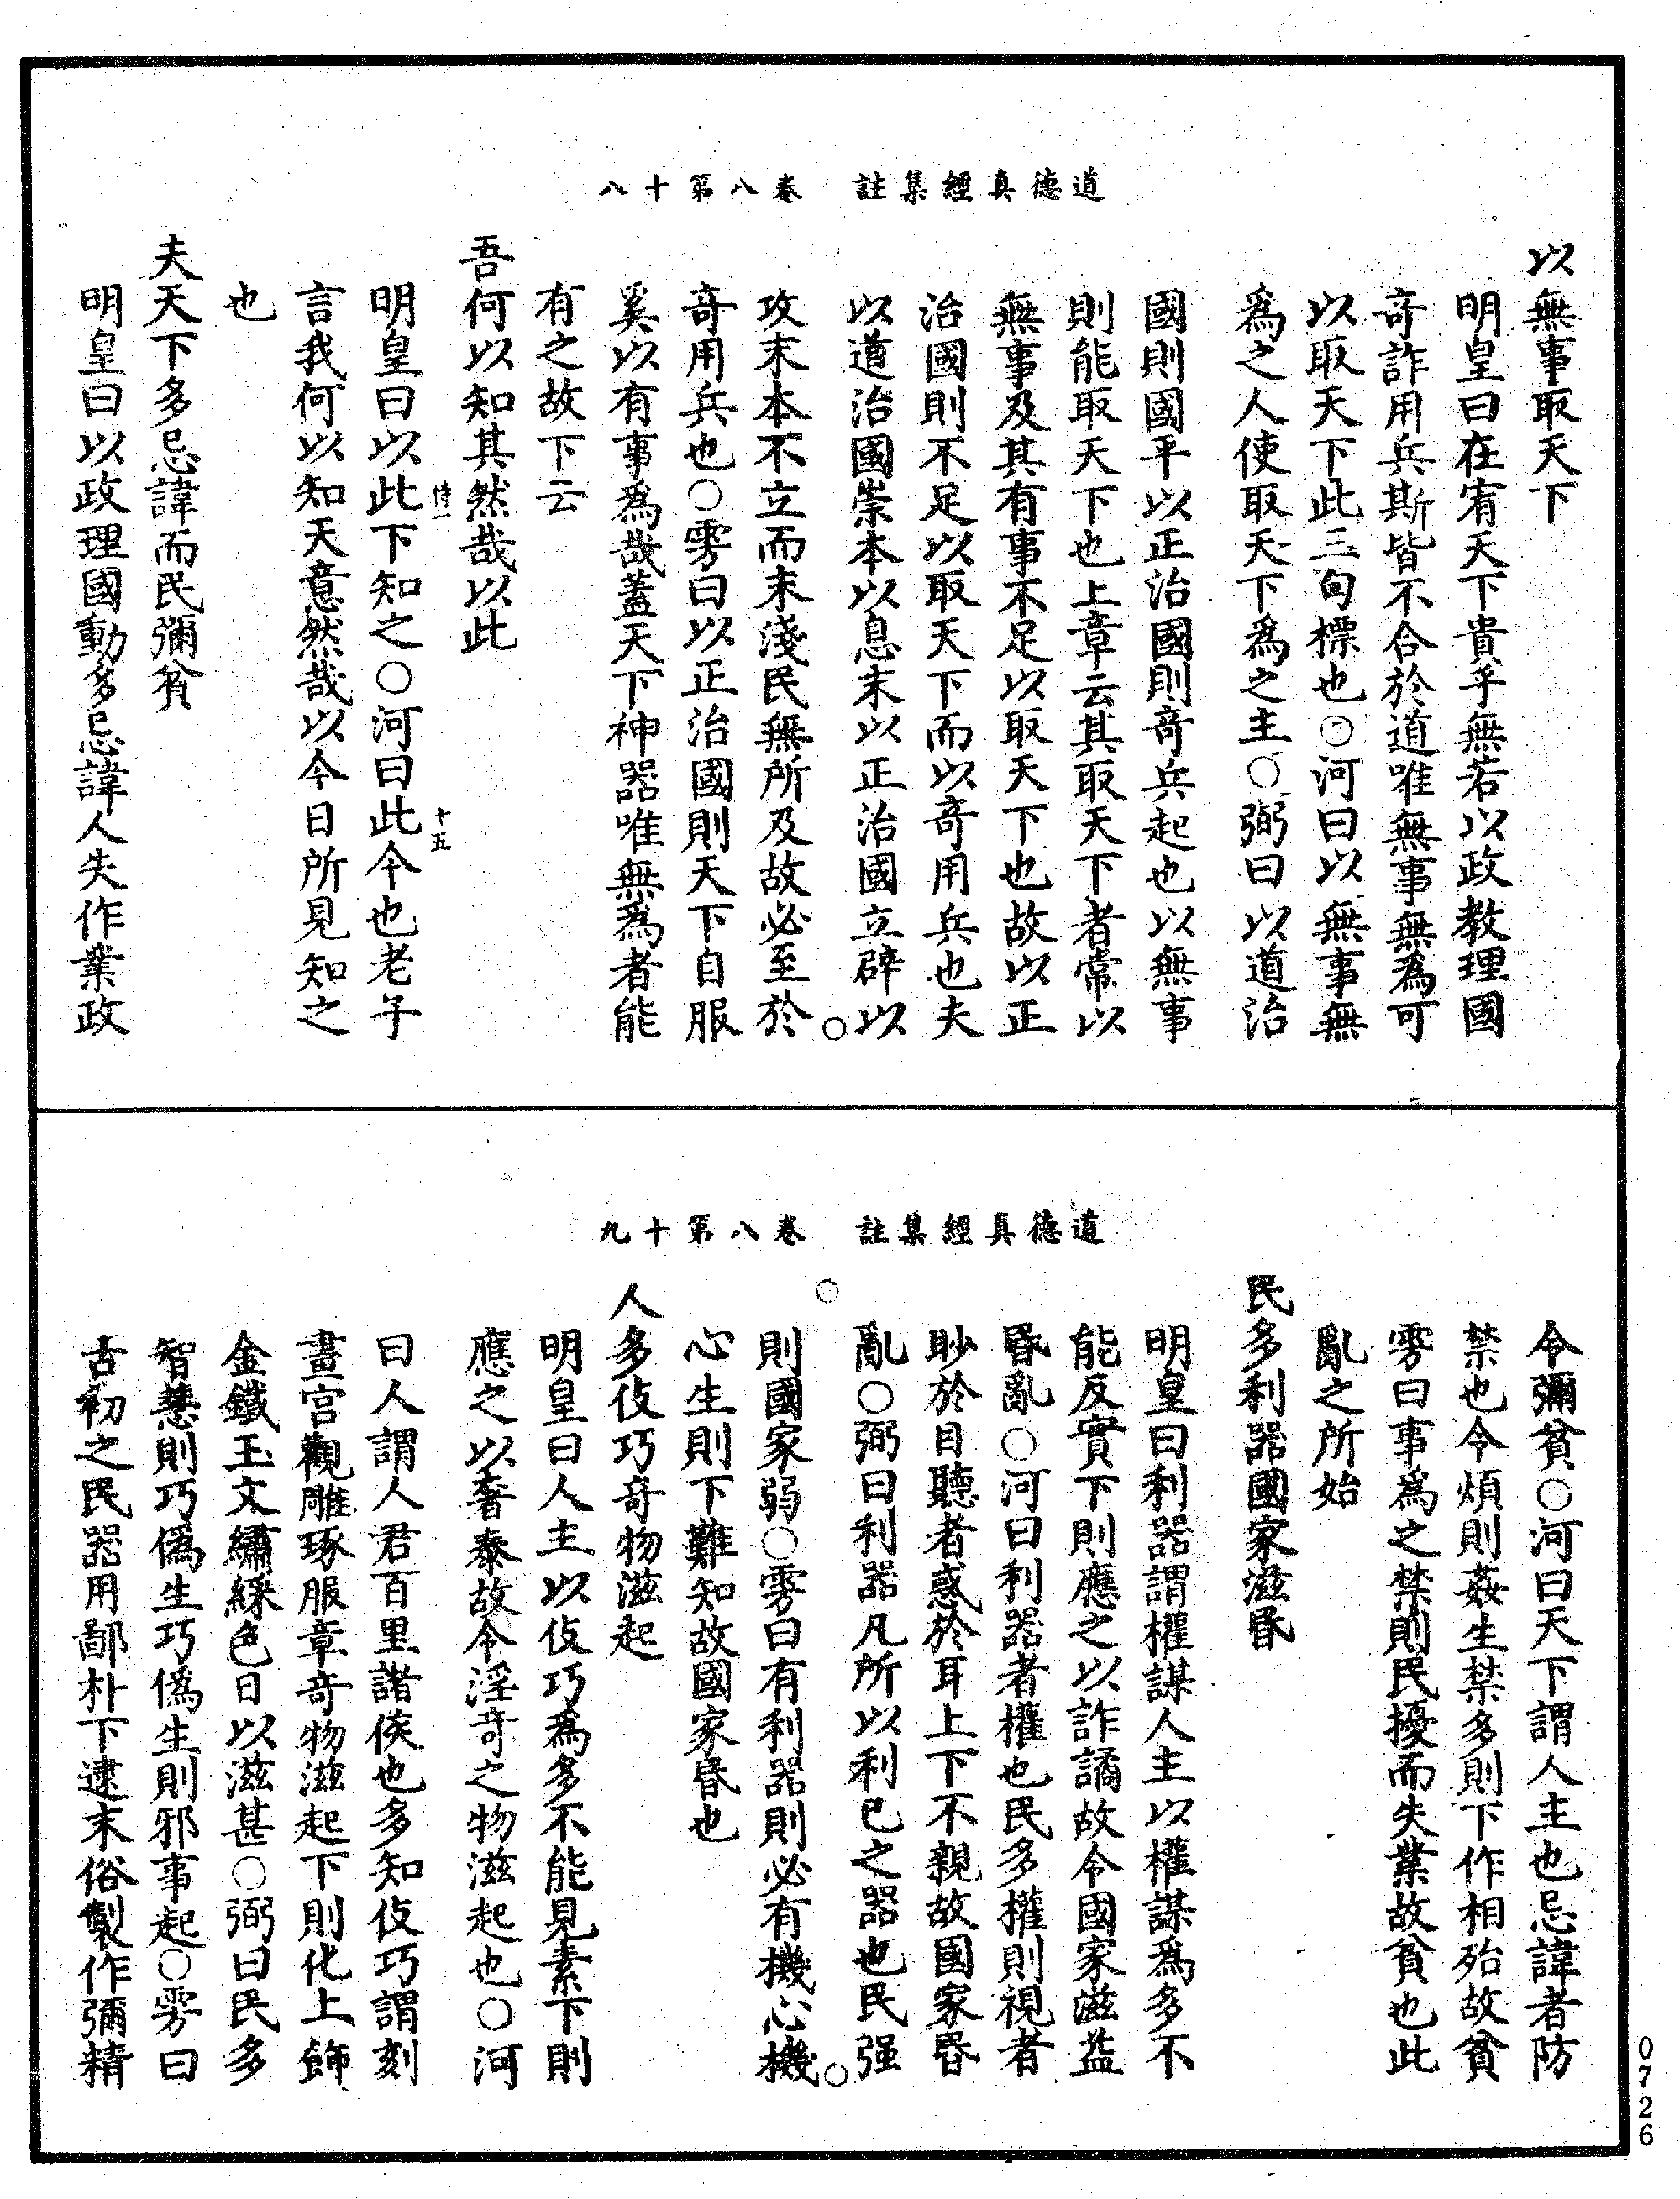 道德真經集註　卷八第十八
以無事取天下
明皇曰在宥天下貴乎無若以政教理國
奇詐用兵斯皆不合於道唯無事無為可
以取天下此三句標也○河曰以無事無
為之人使取天下為之主○弼曰以道治
國則國平以正治國則奇兵起也以無事
則能取天下也上章云其取天下者常以
無事及其有事不足以取天下也故以正
治國則不足以取天下而以奇用兵也夫
以道治國崇本以息末以正治國立辟以
攻末本不立而末淺民無所及故必至於
奇用兵也○雱曰以正治國則天下自服
奚以有事為哉蓋天下神器唯無為者能
有之故下云
吾何以知其然哉以此
十五
明皇曰以此下知之○河曰此今也老子
言我何以知天意然哉以今日所見知之
也
夫天下多忌諱而民彌貧
明皇曰以政理國動多忌諱人失作業政
道德真經集註　卷八第十九
令彌貧○河曰天下謂人主也忌諱者防
禁也令煩則姦生禁多則下作相殆故貧
雱曰事為之禁則民擾而失業故貧也此
亂之所始
民多利器國家滋昏
明皇曰利器謂權謀人主以權謀為多不
能反實下則應之以詐譎故令國家滋益
昏亂○河曰利器者權也民多權則視者
眇於目聽者惑於耳上下不親故國家昏
亂○弼曰利器凡所以利己之器也民强
則國家弱○雱曰有利器則必有機心機
心生則下難知故國家昏也
人多伎巧奇物滋起
明皇曰人主以伎巧為多不能見素下則
應之以奢泰故令淫奇之物滋起也○河
曰人謂人君百里諸侯也多知伎巧謂刻
畫宮觀雕琢服章奇物滋起下則化上飾
金鐵玉文繡綵色日以滋甚○弼曰民多
智慧則巧偽生巧偽生則邪事起○雱曰
古初之民器用鄙朴下逮末俗製作彌精
0726